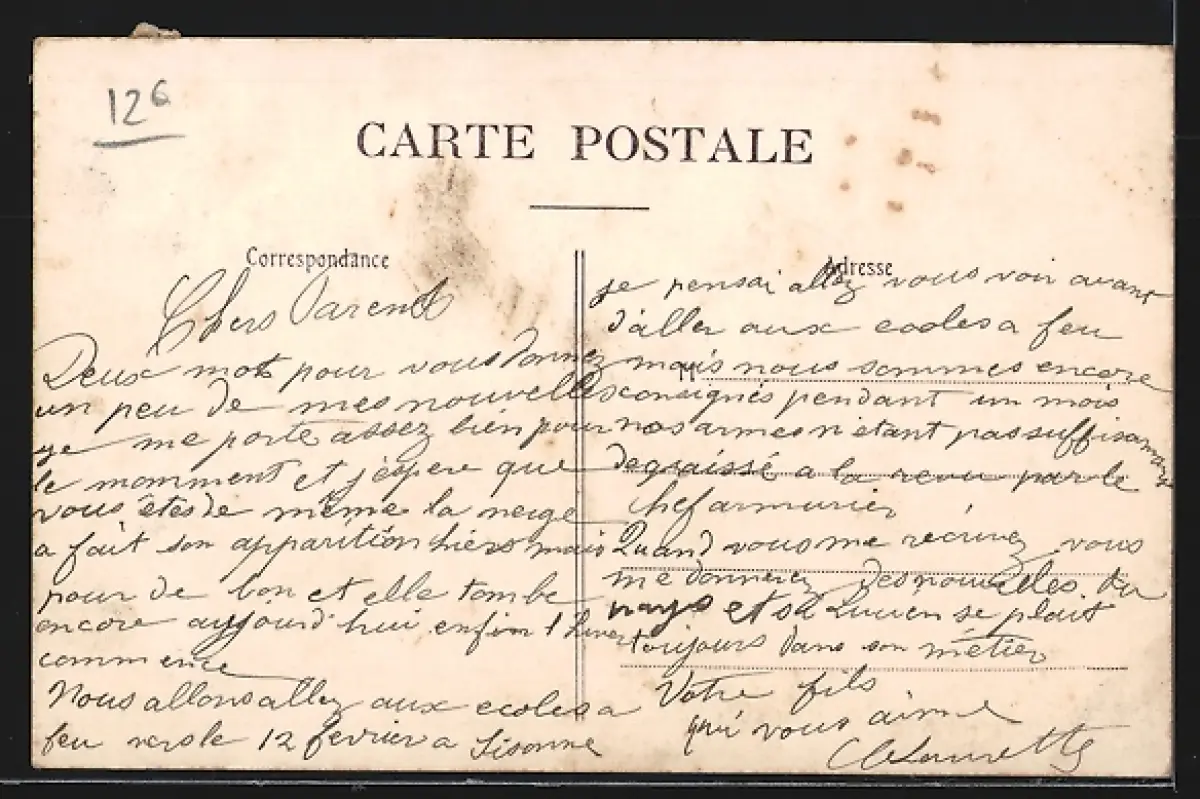 126
CARTE POSTALE
Correspondance
Chers Parents
Deux mots pour vous donnez
un peu de mes nouvelles
je me porte assez bien pour
le momment et j'espere que
vous êtes de même la neige
a fait son apparition hiers mais
pour de bon et elle tombe
encore aujourd'hui enfin l'hiver
commence
Nous allons allez aux ecoles a
feu vers le 12 fevrier a Sisonne
Adresse
je pensai allez vous voir avant
d'aller aux ecoles a feu
mais nous sommes encore
consignés pendant un mois
nos armes n'étant pas suffisamment
degraissé a la revu par le
chef armurier
Quand vous me récrivez vous
me donnerez des nouvelles du
pays et si Lucien se plait
toujours dans son métier
Votre fils
qui vous aime